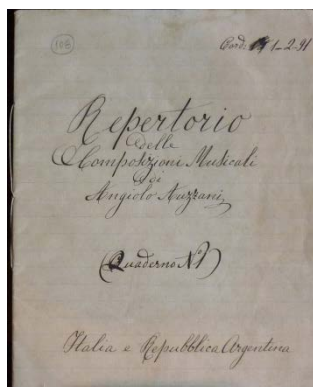 108
1-2-91
Repertorio
delle
Composizioni Musicali
di
Angiolo
(Quaderno Nº1)
Italia e Repubblica Argentina